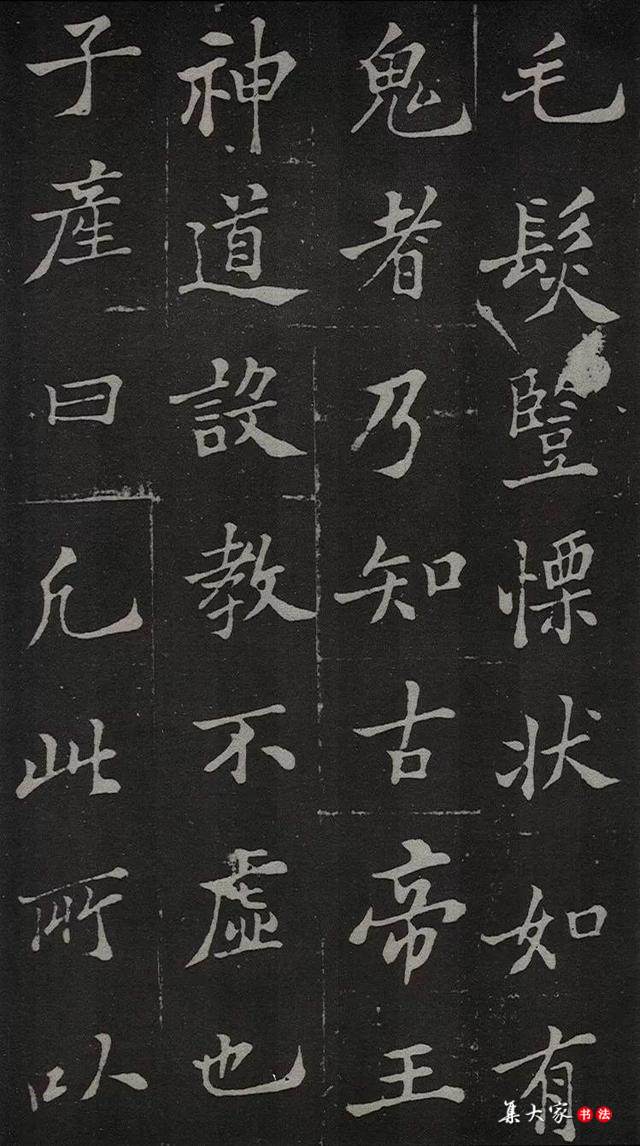 毛髮豎慄狀如有
鬼者乃知古帝王
神道設教不虛也
子產曰凡此所以
集大家书法